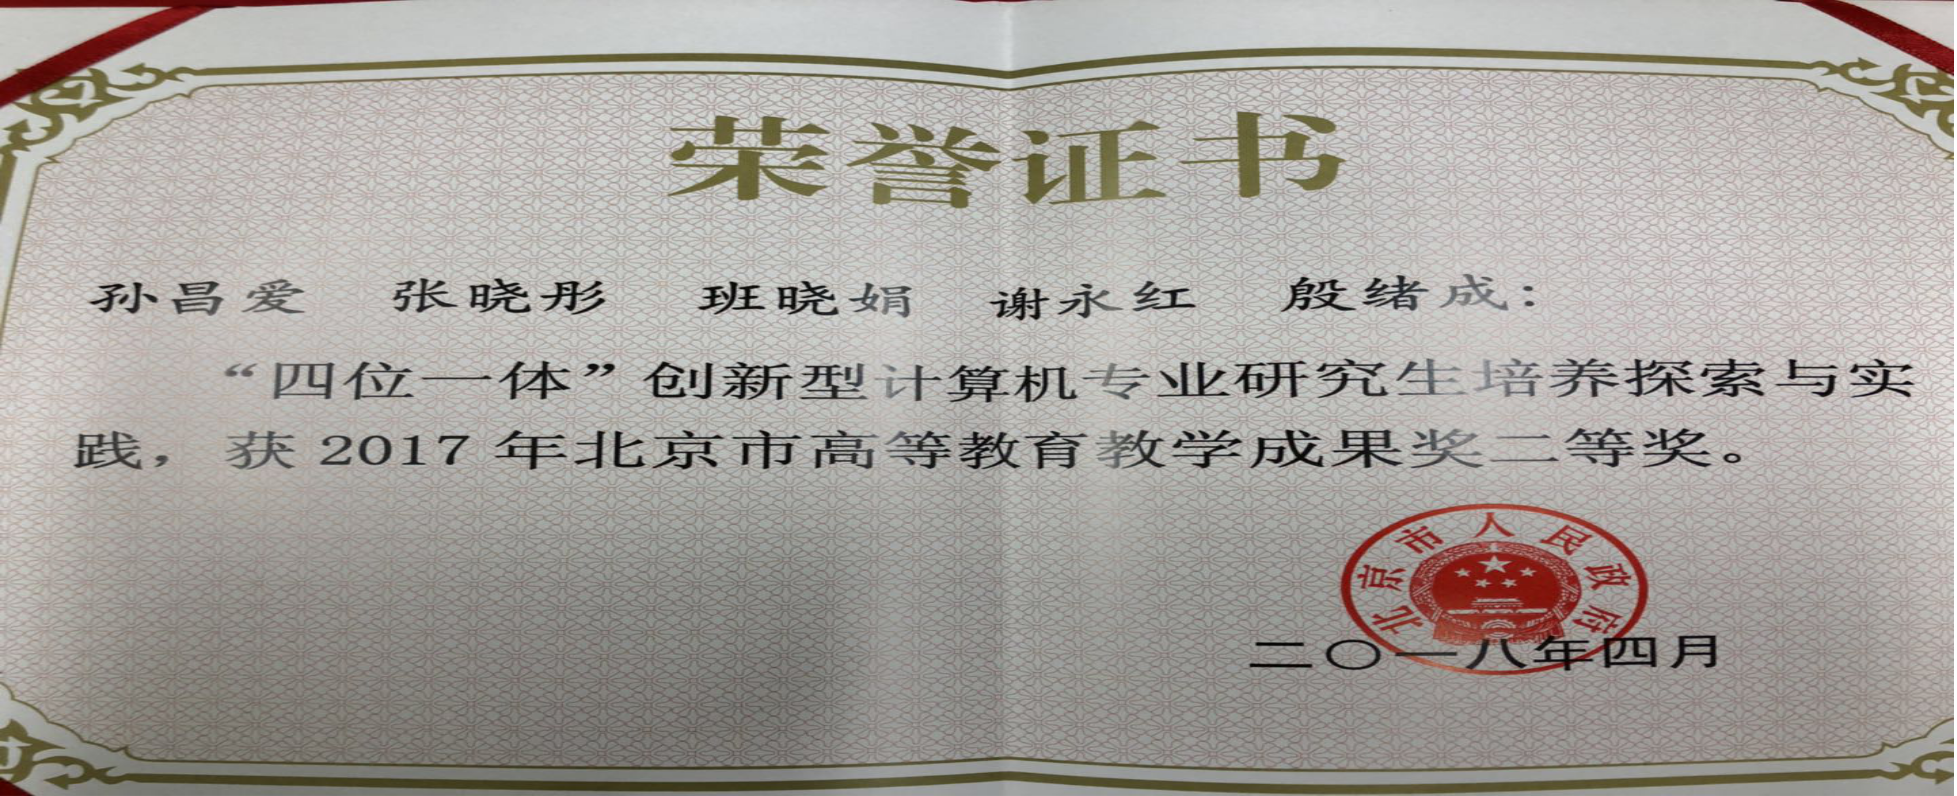 荣誉证书
孙昌爱 张晓彤 班晓娟 谢永红 殷绪成：
“四位一体”创新型计算机专业研究生培养探索与实
践，获 2017 年北京市高等教育教学成果奖二等奖。
北京市人民政府
二〇一八年四月